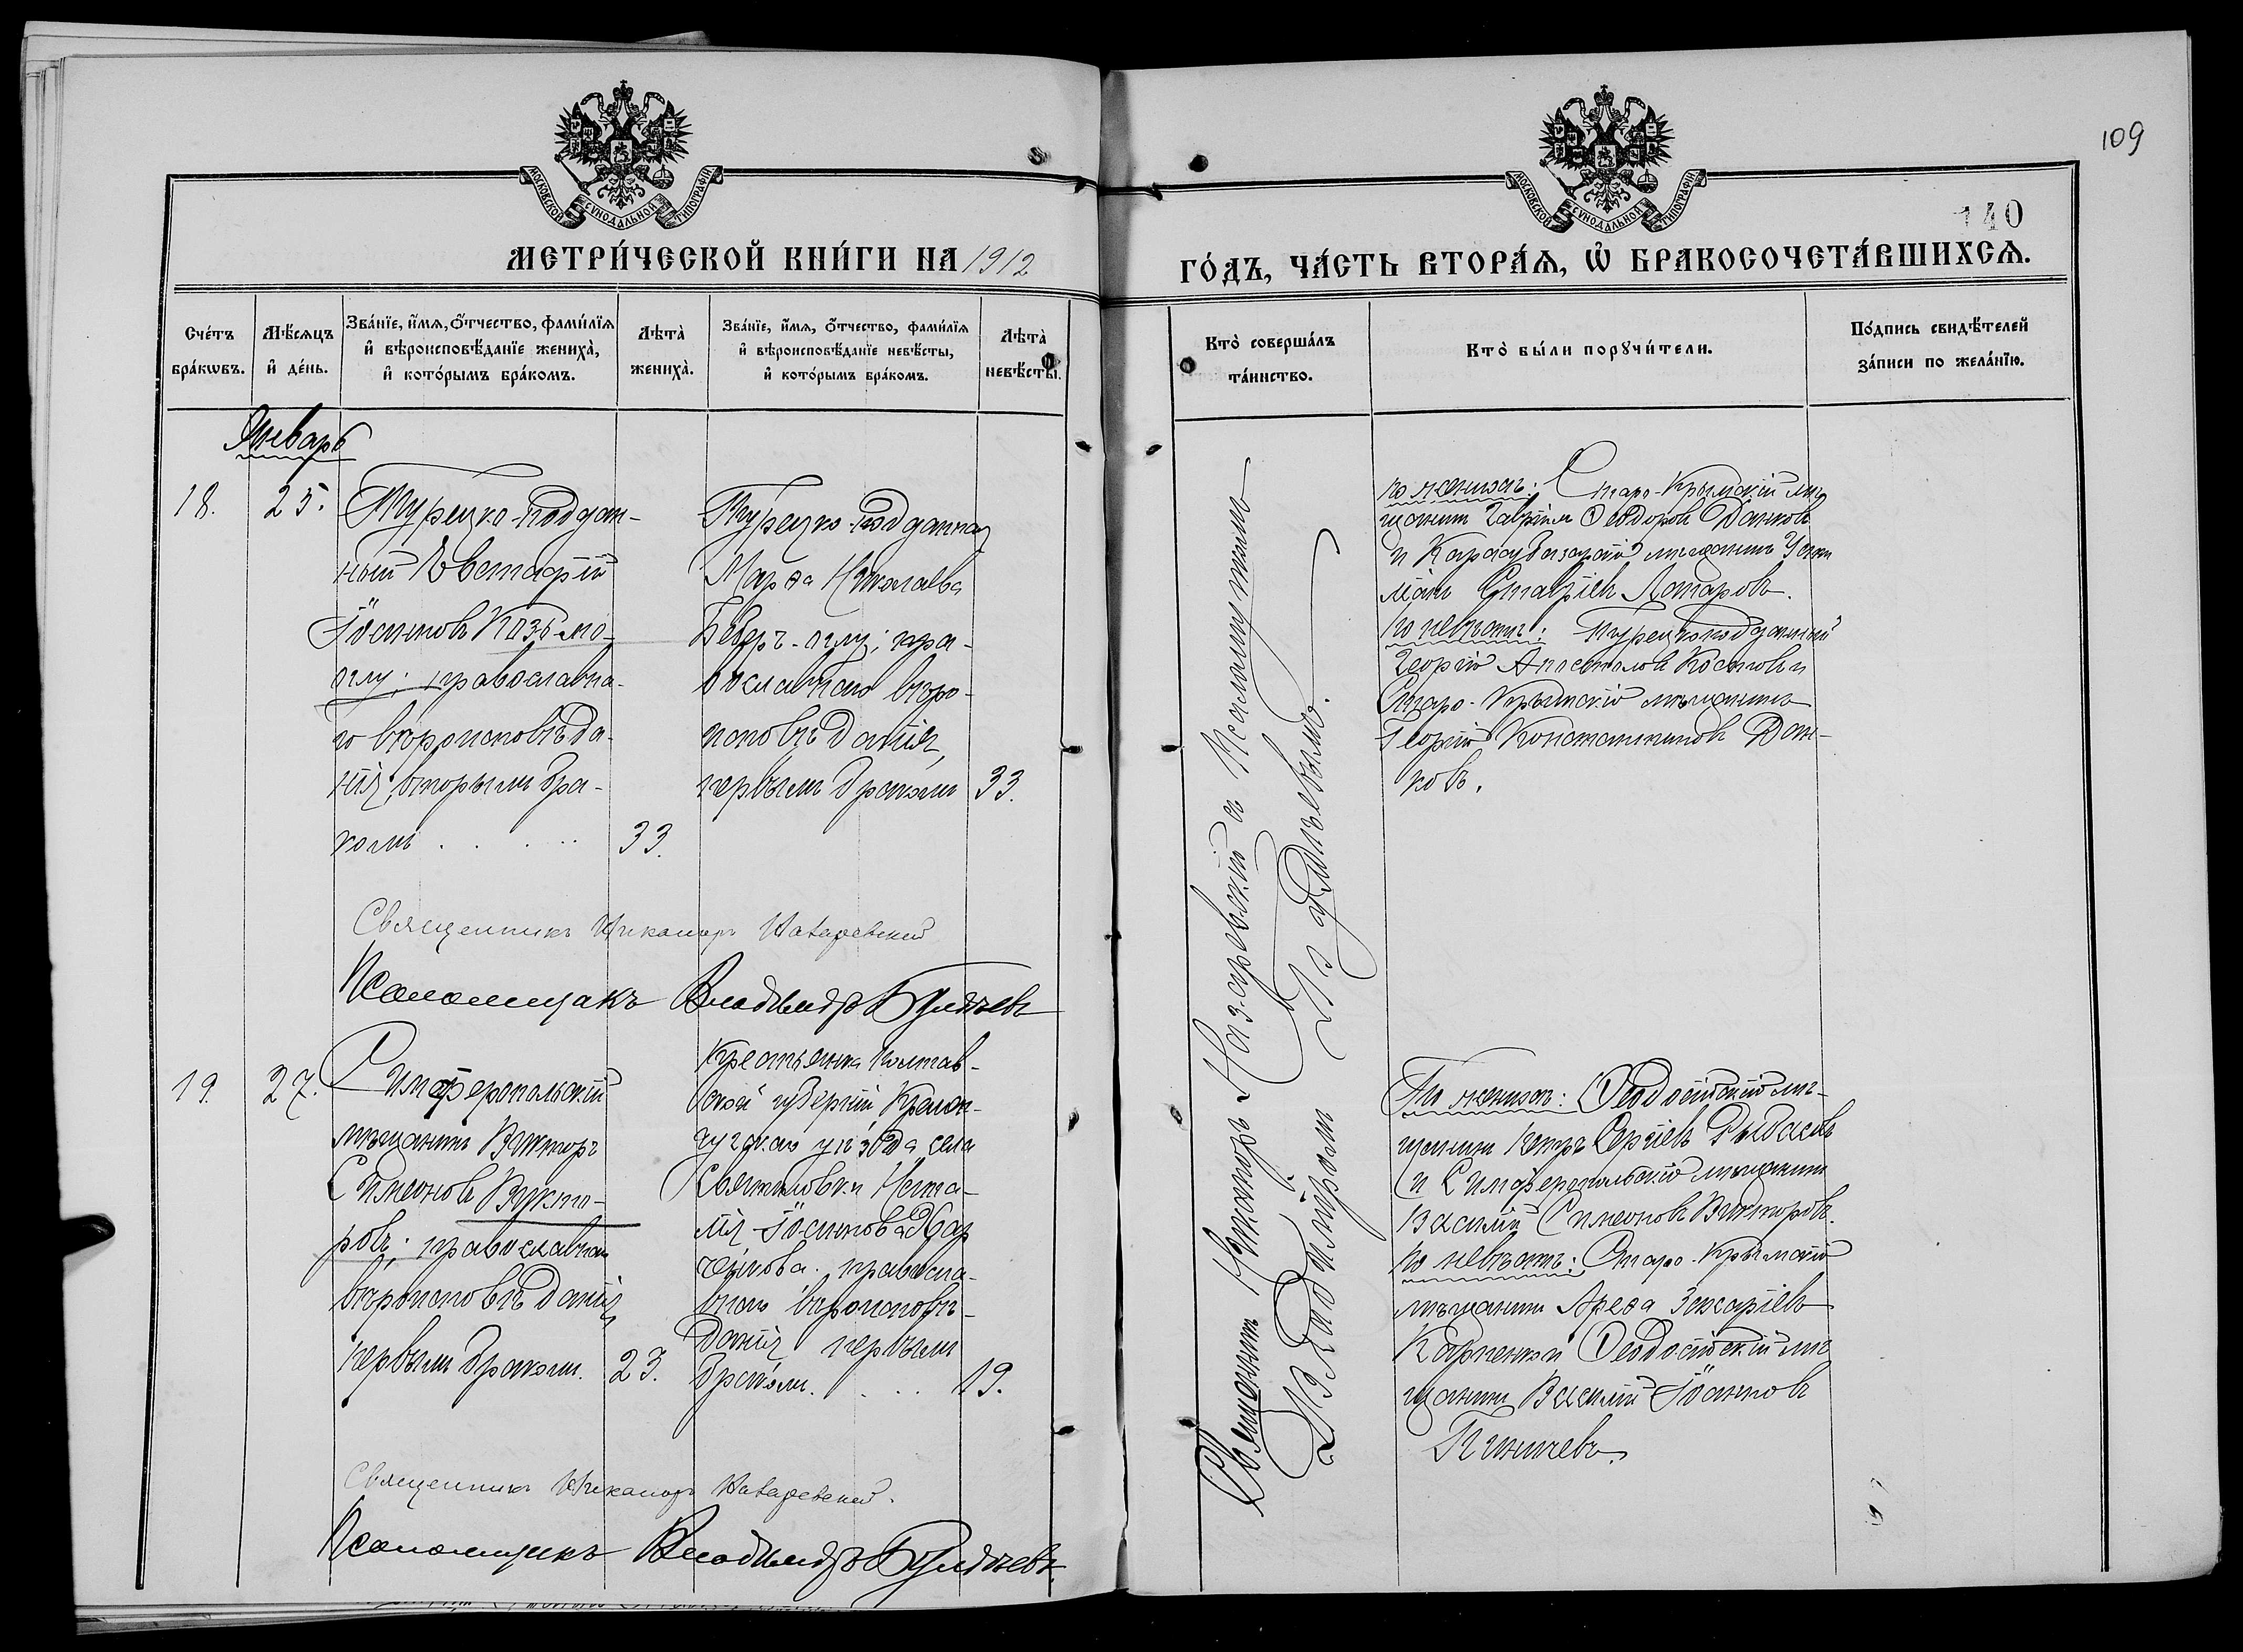 109
140
МОСКОВСКОЙ СУНОДАЛЬНОЙ ТИПОГРАФІИ
МОСКОВСКОЙ СУНОДАЛЬНОЙ ТИПОГРАФІИ
МЕТРИ́ЧЕСКОЙ КНИ́ГИ НА 1912
ГО́ДЪ, ЧА́СТЬ ВТОРА́Ѧ, Ѽ БРАКОСОЧЕТА́ВШИХСѦ.
Сче́тъ бра́кѡвъ.
Мѣ́сяцъ и де́нь.
Зва́нїе, и́мѧ, ѻ́тчество, фами́лїѧ
и вѣроисповѣ́данїе жениха̀,
и кото́рымъ бра́комъ.
Лѣта̀ жениха̀.
Зва́нїе, и́мѧ, ѻ́тчество, фами́лїѧ
и вѣроисповѣ́данїе невѣ́сты,
и кото́рымъ бра́комъ.
Лѣта̀ невѣ́сты.
Кто̀ соверша́лъ та́инство.
Кто̀ бы́ли порꙋчи́тели.
По́дпись свидѣ́телей за́писи по жела́нїю.
Январь
18.
25.
Турецко-поддан-
ный Евстафій
Іоанновъ Козь-мо-
глу; православна-
го вѣроисповѣда-
нія, вторымъ бра-
комъ . . . . .
33.
Турецко-подданная
Марѳа Николаева
православнаго вѣро-
исповѣданія,
первымъ бракомъ
33.
по женихѣ: Старо-Крымскій мѣ-
щанинъ Гавріилъ Ѳеодоровъ Данковъ
и Карасубазарскій мѣщанинъ
По невѣстѣ: Турецкоподданный
Георгій Апостоловъ Костовъ и
Старо-Крымскій мѣщанинъ
Георгій Константиновъ Дан-
ковъ.
Священникъ Никаноръ Назаревскій
Псаломщикъ Владиміръ Булдчевъ
19.
27.
Симферопольскій
мѣщанинъ Викторъ
Симеоновъ Викто-
ровъ; православнаго
вѣроисповѣданія
первымъ бракомъ.
23.
Крестьянка Полтав-
ской губерніи, Кремен-
чугскаго уѣзда села
Святиловки Ната-
лія Іоаннова
правосла-
внаго вѣроисповѣ-
данія первымъ
бракомъ. . . .
19.
По женихѣ: Ѳеодосійскій мѣ-
щанинъ Петръ Сергіевъ Рыбасовъ
и Симферопольскій мѣщанинъ
Василій Симеоновъ Викторовъ.
По невѣстѣ: Старо-Крымскій
мѣщанинъ Ареѳа Захаріевъ
Карпенко и Ѳеодосійскій мѣ-
щанинъ Василій Іоанновъ
Священникъ Никаноръ Назаревскій.
Псаломщикъ Владиміръ Булдчевъ.
Священникъ Никаноръ Назаревскій съ Псаломщикомъ
Владиміромъ